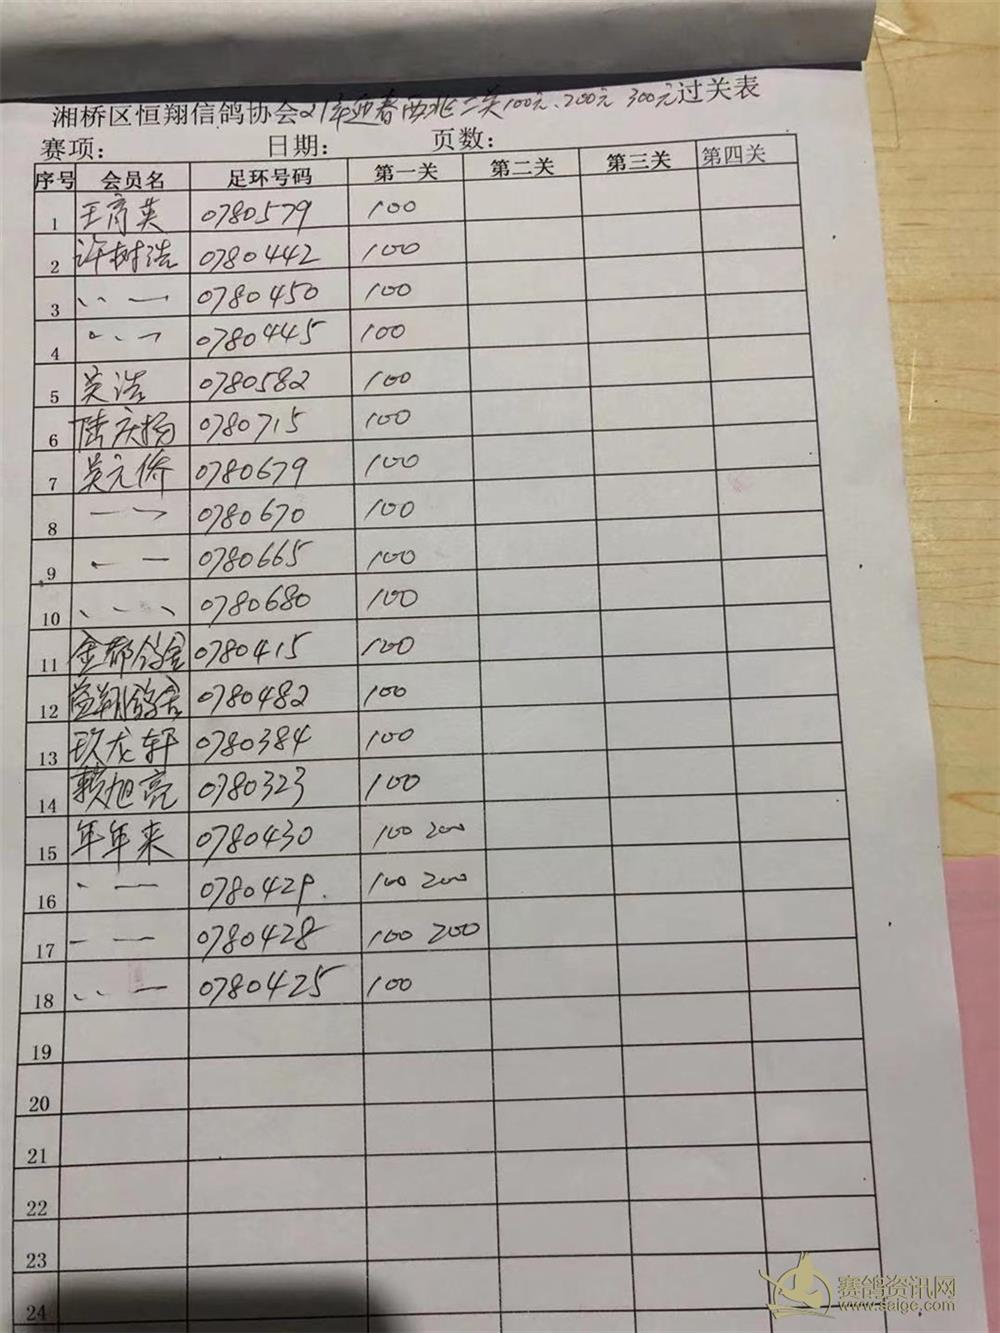 湘桥区恒翔信鸽协会21年迎春西北二关100元、200元 300元过关表
赛项: 日期: 页数:
序号 会员名 足环号码 第一关 第二关 第三关 第四关
1 王育英 0780579 100
2 许树浩 0780442 100
3 、、一 0780450 100
4 0780445 100
5 吴浩 0780582 100
6 陆庆扬 0780715 100
7 吴元侨 0780679 100
8 0780670 100
9 、一 0780665 100
10 、、、、 0780680 100
11 金都鸽舍 0780415 100
12 益翔鸽舍 0780482 100
13 玖龙轩 0780384 100
14 赖旭亮 0780323 100
15 年年来 0780430 100 200
16 、一 0780429. 100 200
17 一 一 0780428 100 200
18 、、一 0780425 100
19
20
21
22
23
24
赛鸽资讯网
www.saige.com